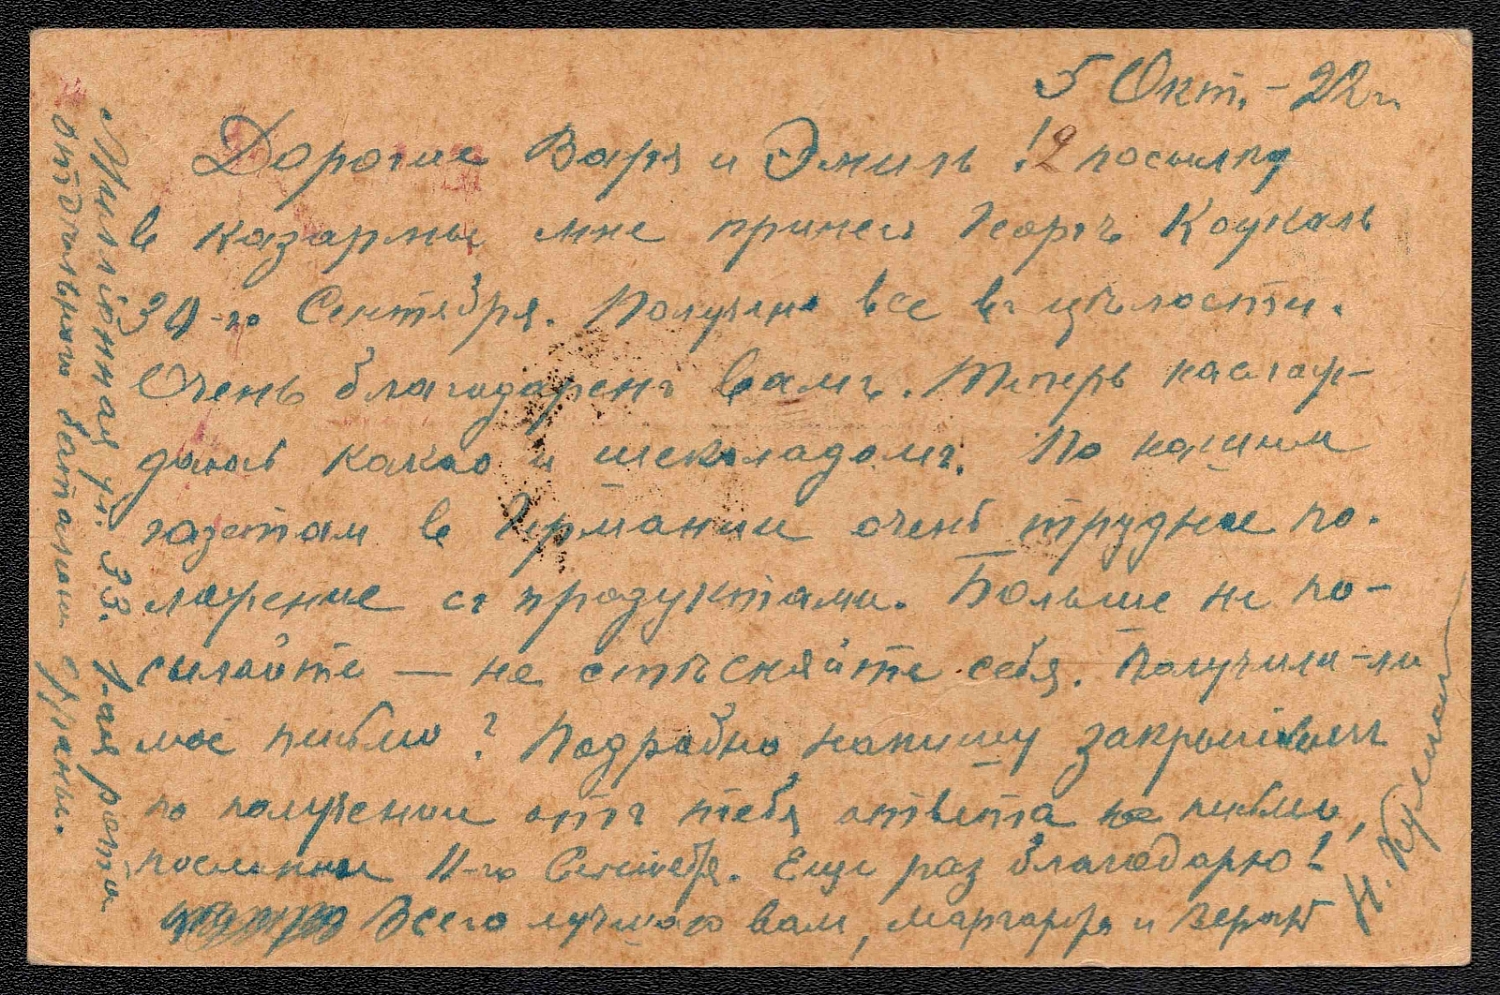 5 Окт. - 22 г.
Дорогие Варя и Эмиль! 2 посылку
в казармы мне принес Георгъ Коукаль
30-го Сентября. Получено все въ цѣлости.
Очень благодаренъ вамъ. Теперь наслаж-
даюсь какао и шеколадомъ. По нашим
газетам в Германии очень трудное по-
ложение съ продуктами. Больше не по-
сылайте — не стѣсняйте себя. Получили-ли
мое письмо? Подробно напишу закрытым
по получении отъ тебя отвѣта на письмо,
посланное 11-го Сентября. Еще раз благодарю!
Всего лучшаго вам, Маргарите и
Миллiонная ул. 33. 1-ая рота
отдѣльного батальона охраны.